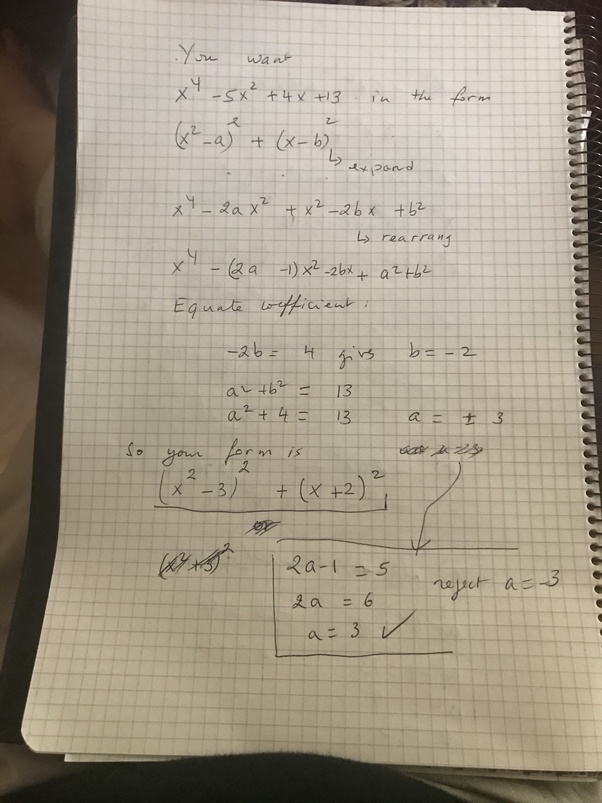 You want
x⁴ - 5x² + 4x + 13 in the form
(x² - a)² + (x - b)²
↳ expand
x⁴ - 2ax² + x² - 2bx + b²
↳ rearrang
x⁴ - (2a - 1)x² - 2bx + a² + b²
Equate coefficient:
-2b = 4 givs b = -2
a² + b² = 13
a² + 4 = 13 a = ± 3
So your form is
(x² - 3)² + (x + 2)²
2a - 1 = 5 reject a = -3
2a = 6
a = 3 ✓